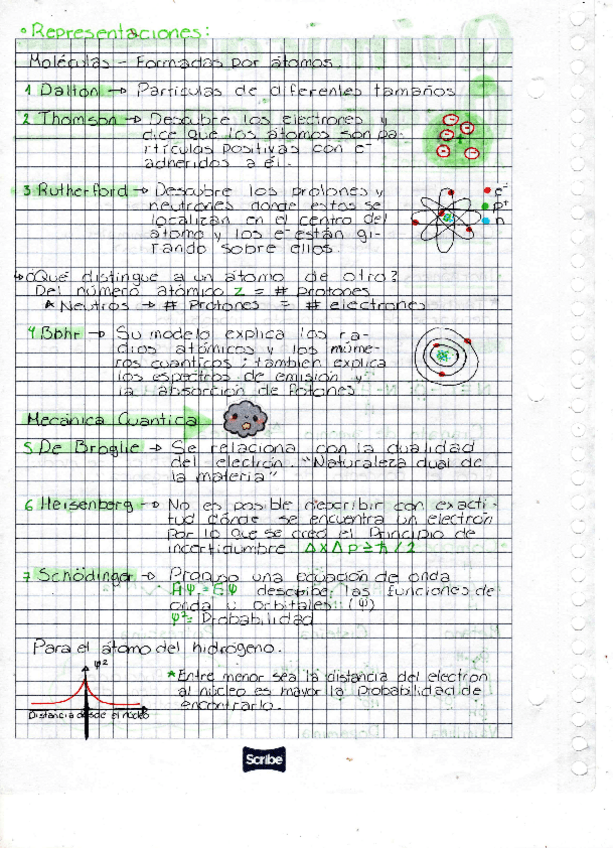 • Representaciones:
Moléculas - Formadas por átomos.
1 Dalton → Partículas de diferentes tamaños
2 Thomson → Descubre los electrones y
dice que los átomos son pa-
rtículas positivas con e-
adheridos a él.
3 Rutherford → Descubre los protones y
neutrones donde estos se
localizan en el centro del
átomo y los e- están gi-
rando sobre ellos.
e-
p+
n
↳ ¿Qué distingue a un átomo de otro?
Del número atómico Z = # Protones
* Neutros → # Protones = # electrones
4 Bohr → Su modelo explica los ra-
dios atómicos y los núme-
ros cuánticos; también explica
los espectros de emisión y
la absorción de fotones
Mecánica Cuantica
5 De Broglie → Se relaciona con la dualidad
del electrón. "Naturaleza dual de
la materia"
6 Heisenberg → No es posible describir con exacti-
tud dónde se encuentra un electrón
por lo que se creó el Principio de
incertidumbre Δx Δp ≥ ħ/2
7 Schödinger → Propuso una ecuación de onda
ĤΨ = EΨ describe: las funciones de
onda u orbitales: (Ψ)
Ψ² = Probabilidad
Para el átomo del hidrógeno.
Ψ²
Distancia desde el núcleo
* Entre menor sea la distancia del electrón
al núcleo es mayor la probabilidad de
encontrarlo.
Scribe